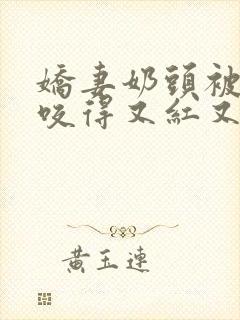 嬌妻奶頭被
咬得又紅又
黃玉連